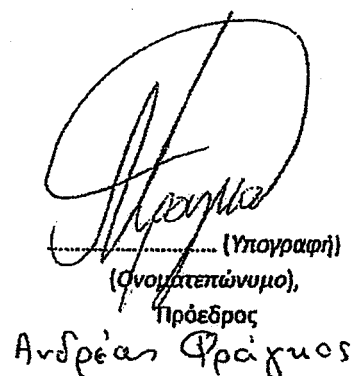 .............................. (Υπογραφή)
(Ονοματεπώνυμο),
Πρόεδρος
Ανδρέας Φράγκος